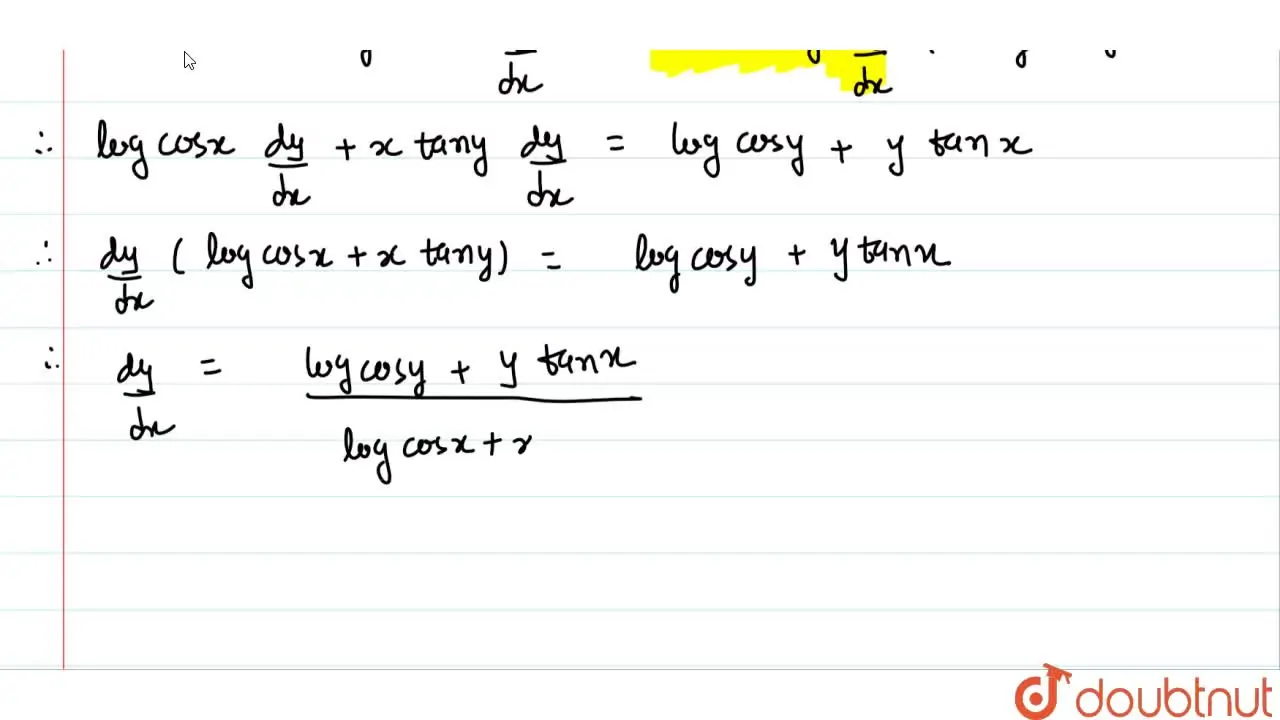 dx dx
∴ log cosx dy/dx + x tany dy/dx = log cosy + y tanx
∴ dy/dx ( log cosx + x tany) = log cosy + y tanx
∴ dy/dx = log cosy + y tanx / log cosx + x
doubtnut